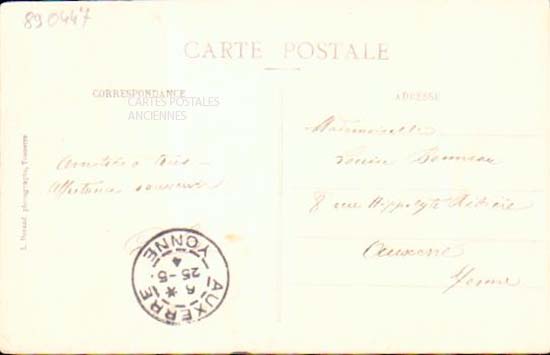 890447
CARTE POSTALE
CORRESPONDANCE
CARTES POSTALES
ANCIENNES
Amitiés
Affectueux
AUXERRE
YONNE
6 *
25-5
4
ADRESSE
Mademoiselle
Louise Bonneau
8 rue Hippolyte Ribière
Auxerre
Yonne
photographe, Tonnerre